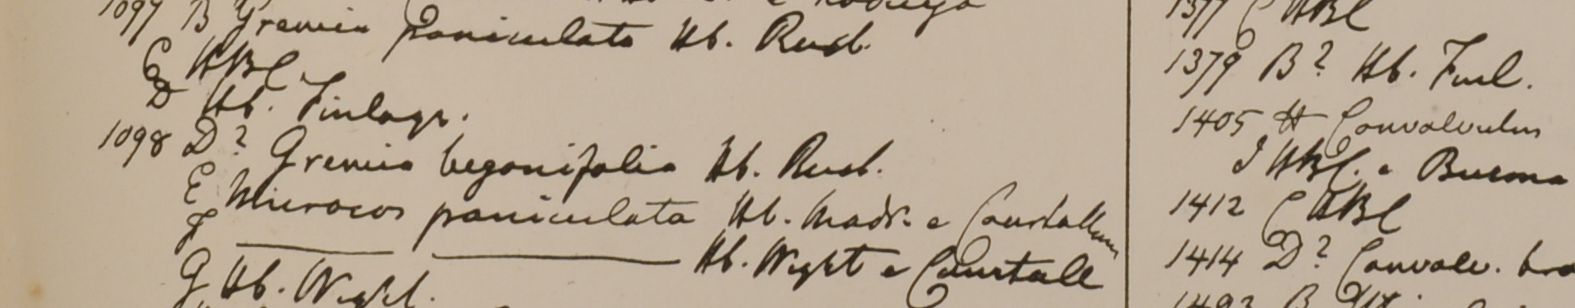 1097 B Grewia paniculata Hb. Roxb.
C HBC
D Hb. Finlays.
1098 D? Grewia begonifolia Hb. Roxb.
E Microcos paniculata Hb. Madr. e Courtallum
F ——— ——— Hb. Wight e Courtall
G Hb. Wight.
1377 C HBC
1379 B? Hb. Finl.
1405 H Convolvulus
I HBC. e Burma
1412 C HBC
1414 D? Convolv.
1493 B